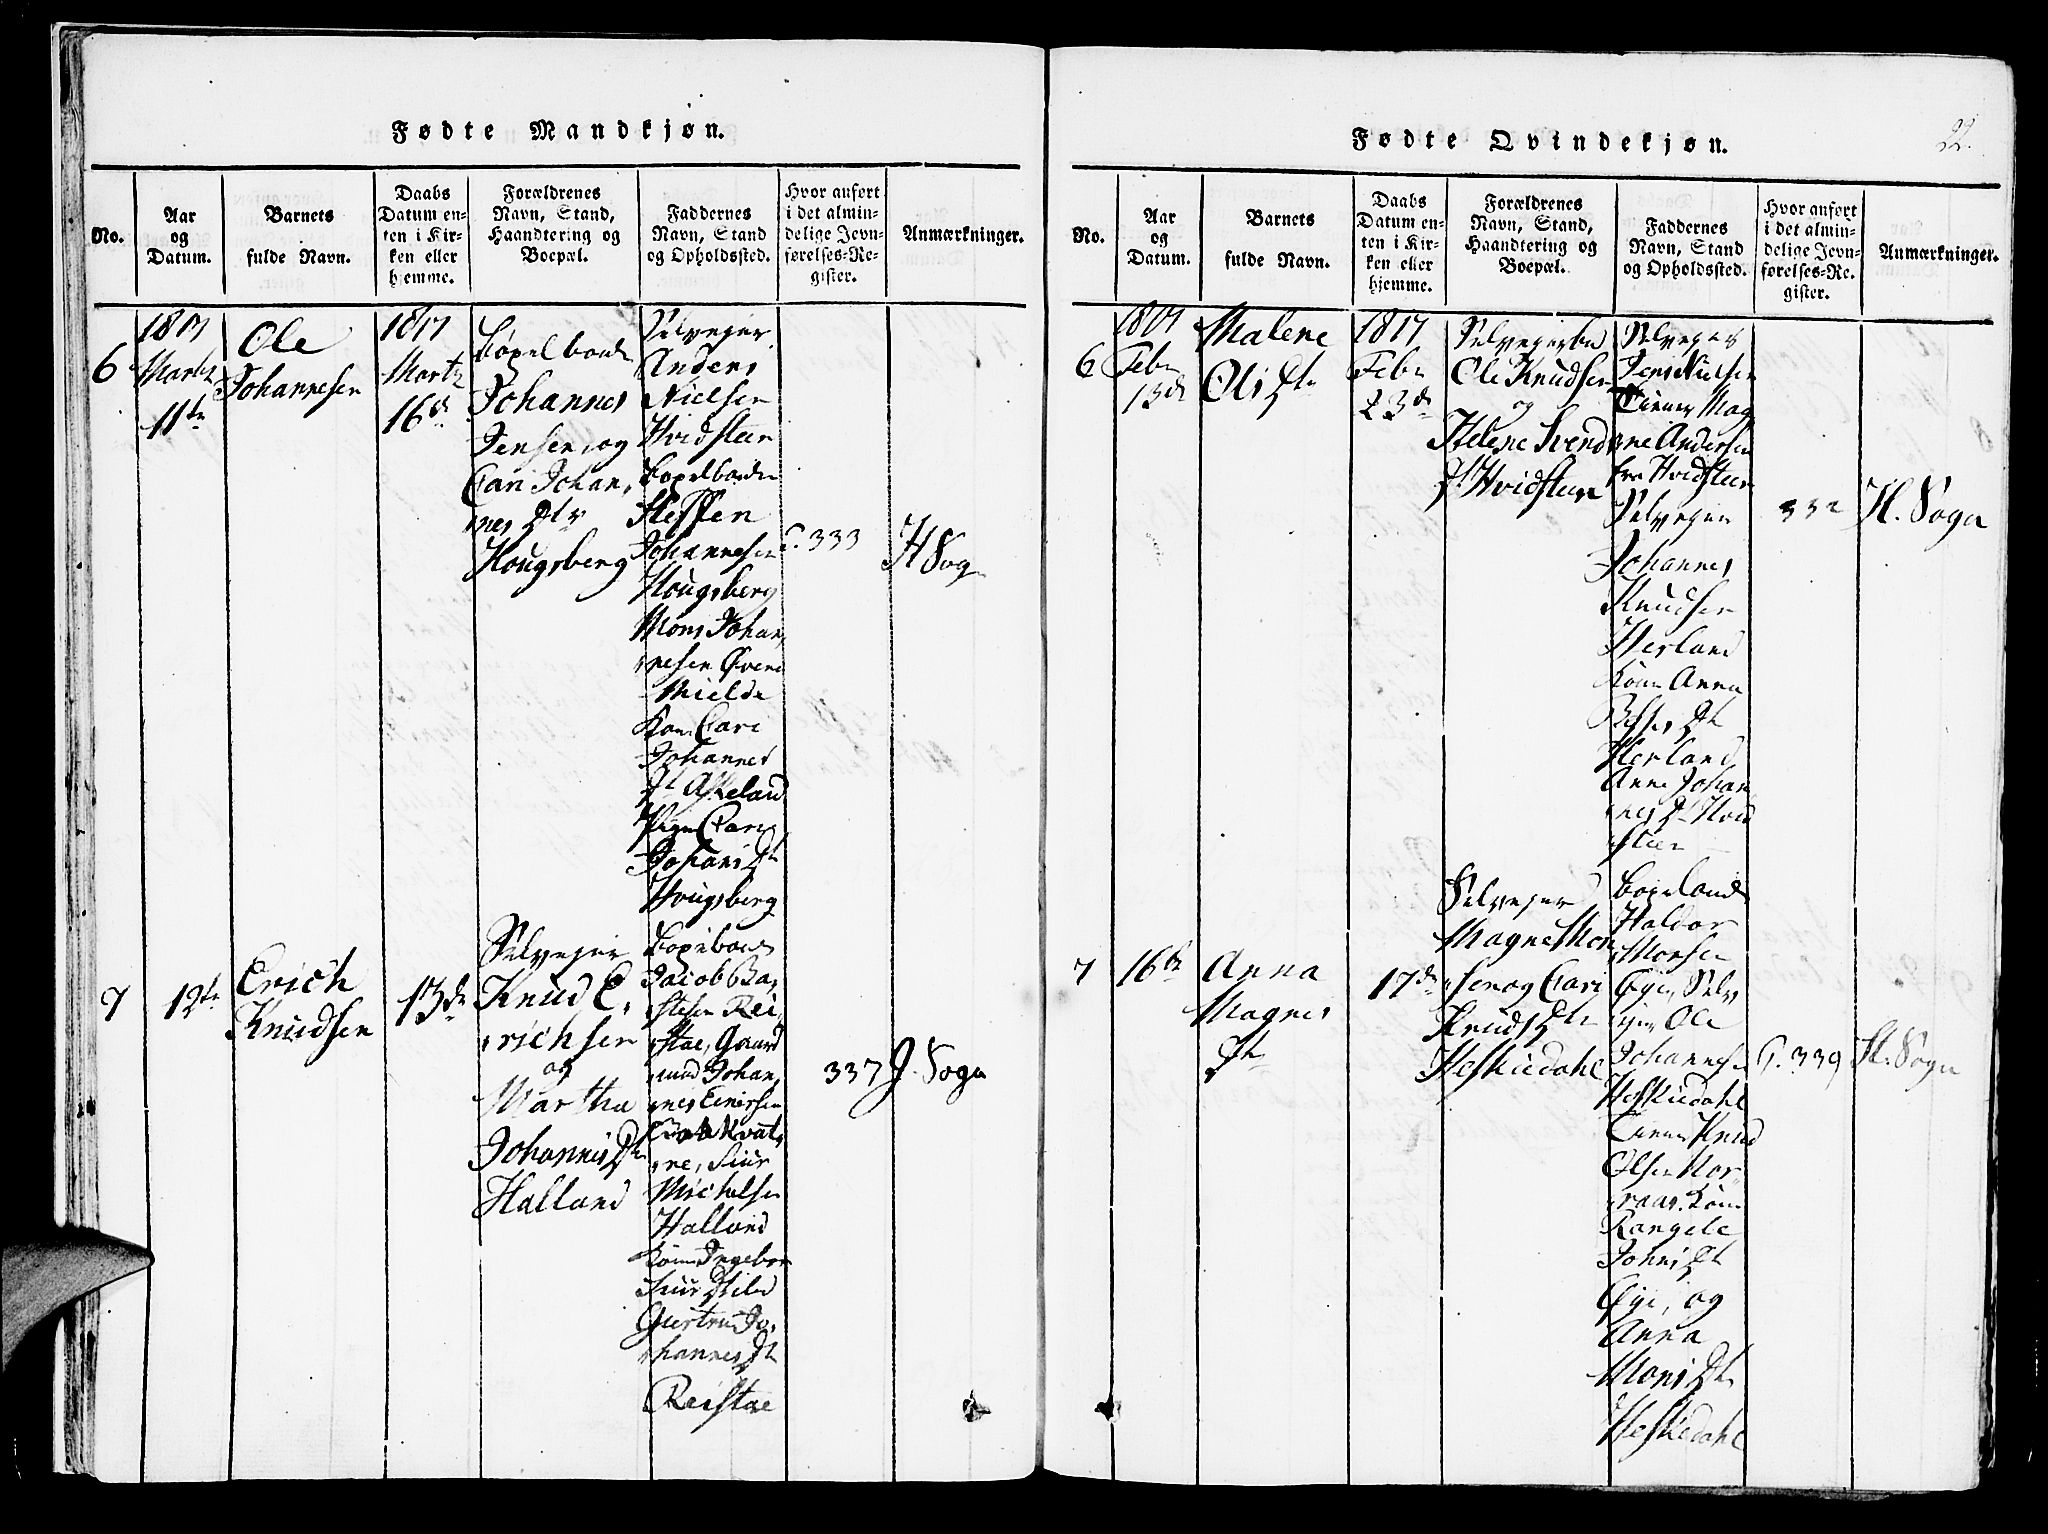 Fødte Mandkjøn.
No.
Aar
og
Datum.
Barnets
fulde Navn.
Daabs
Datum en-
ten i Kir-
ken eller
hjemme.
Forældrenes
Navn, Stand,
Haandtering og
Boepæl.
Faddernes
Navn, Stand
og Opholdssted.
Hvor anført
i det almin-
delige Jevn-
førelses-Re-
gister.
Anmærkninger.
6
1817
Martz
11te
Ole
Johannesen
1817
Martz
16d
Johannes
Jensen og
Cari Johan,
nes Dtr
Hougsberg
Selvejer
Anders
Nielsen
Hvidsteen
Steffen
Johannesen
Hougsberg
Mons Johan,
nesen Øvene
Mielde
Kone Cari
Johannes
Dt Askeland
Pige Cari
Johans Dt
Hougsberg
333
H Sogn
7
12te
Erich
Knudsen
13de
Selvejer
Knud E,
richsen
og
Martha
Johannis Dtr
Halland
Jacob Ba,
stesen Rei,
stae, Gaard
mand Johan,
nes Einersen
ne, Siur
Michelsen
Halland
Kone Ingebor
Siurs Dt ibd
Giertrud Jo,
hannes Dt
Reistae
337
J. Sogn
Fødte Qvindekjøn.
22.
No.
Aar
og
Datum.
Barnets
fulde Navn.
Daabs
Datum en-
ten i Kir-
ken eller
hjemme.
Forældrenes
Navn, Stand,
Haandtering og
Boepæl.
Faddernes
Navn, Stand
og Opholdssted.
Hvor anført
i det almin-
delige Jevn-
førelses-Re-
gister.
Anmærkninger.
6
1817
Febr
13de
Malene
Ols Dtr
1817
Febr
23de
Ole Knudsen
og
Helene Svend
Dt Hvidsteen
Selvejer
Jens Nielsen
Tiener Mag
ne Andersen
fra Hvidsteen
Selvejer
Johannes
Knudsen
Herland
Kone Anna
Dt
Herland
Anne Johan
nes Dt Hvid
steen
332
H. Sogn
7
16de
Anna
Magnes
Dtr
17de
Selvejer
Magne Mon
sen og Cari
Knuds Dtr
Heskiedahl
Haldor
Monsen
Øye, Selv
ejer Ole
Johannesen
Heskiedahl
Tiener Knud
Olsen Nor
raas. Kone
Rangele
Johns Dt
Øye, og
Anna
Mons Dtr
Heskiedahl
P. 339
H. Sogn